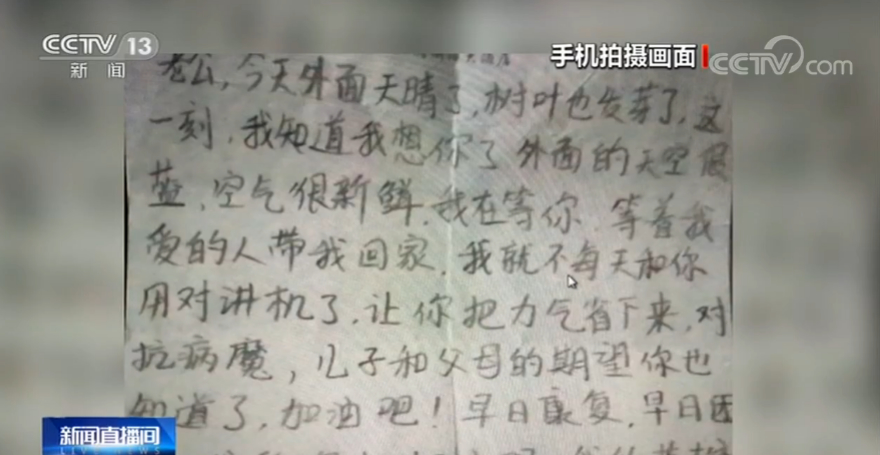 CCTV 13
新闻
手机拍摄画面
CCTV com
老公,今天外面天晴了,树叶也发芽了,这
一刻,我知道我想你了 外面的天空很
蓝,空气很新鲜,我在等你,等着我
爱的人带我回家,我就不每天和你
用对讲机了,让你把力气省下来,对
抗病魔,儿子和父母的期望你也
知道了,加油吧!早日康复,早日团
新闻直播间
LIVE NEWS